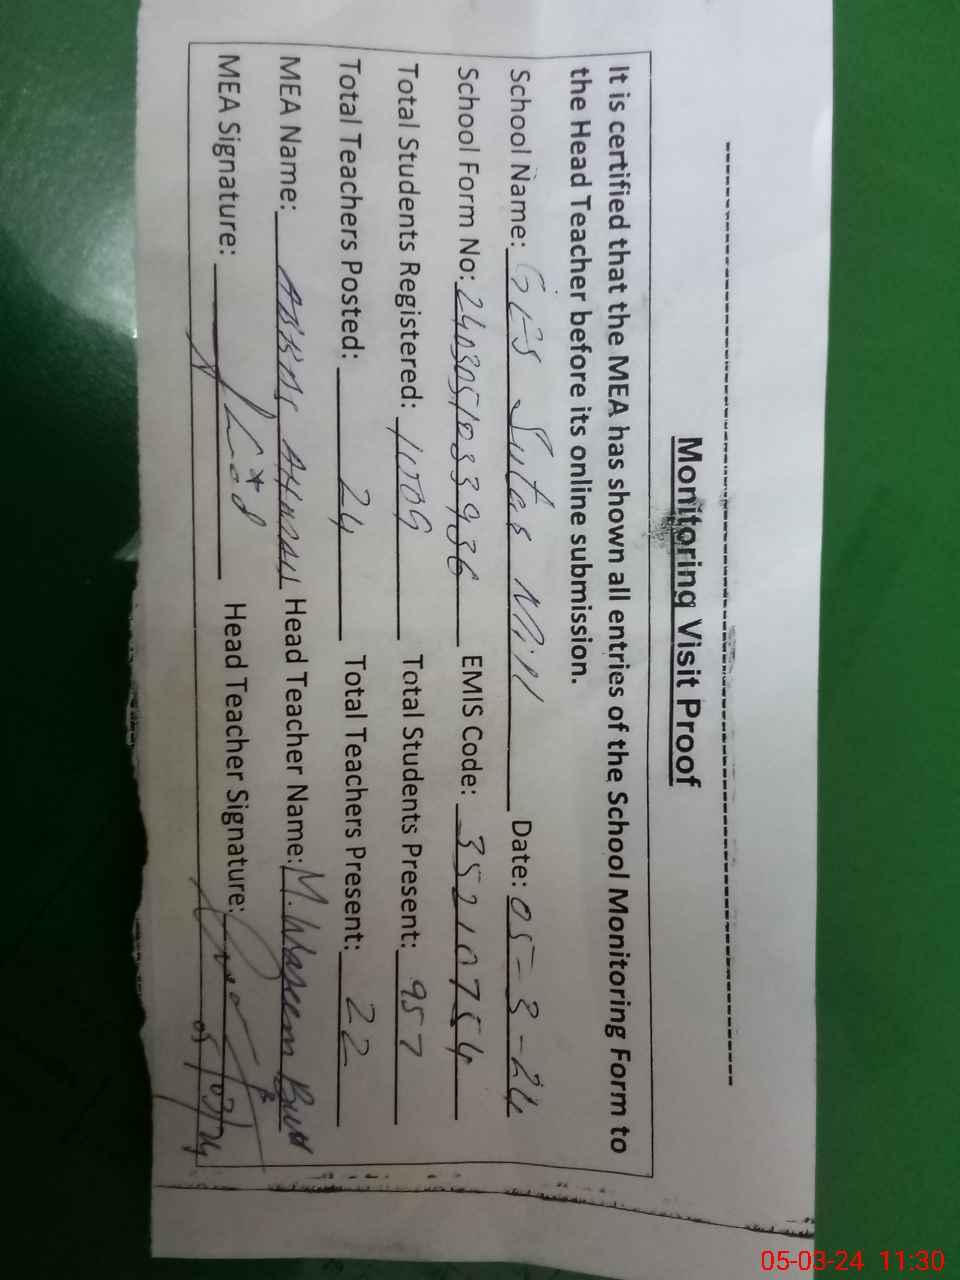 Monitoring Visit Proof
It is certified that the MEA has shown all entries of the School Monitoring Form to
the Head Teacher before its online submission.
School Name: GES Sutar Mill Date: 05-3-24
School Form No: 2403051033936 EMIS Code: 35210754
Total Students Registered: 1009 Total Students Present: 957
Total Teachers Posted: 24 Total Teachers Present: 22
MEA Name: ABBAS Head Teacher Name: M. Waseem Butt
MEA Signature: Head Teacher Signature:
05/03/24
05-03-24 11:30